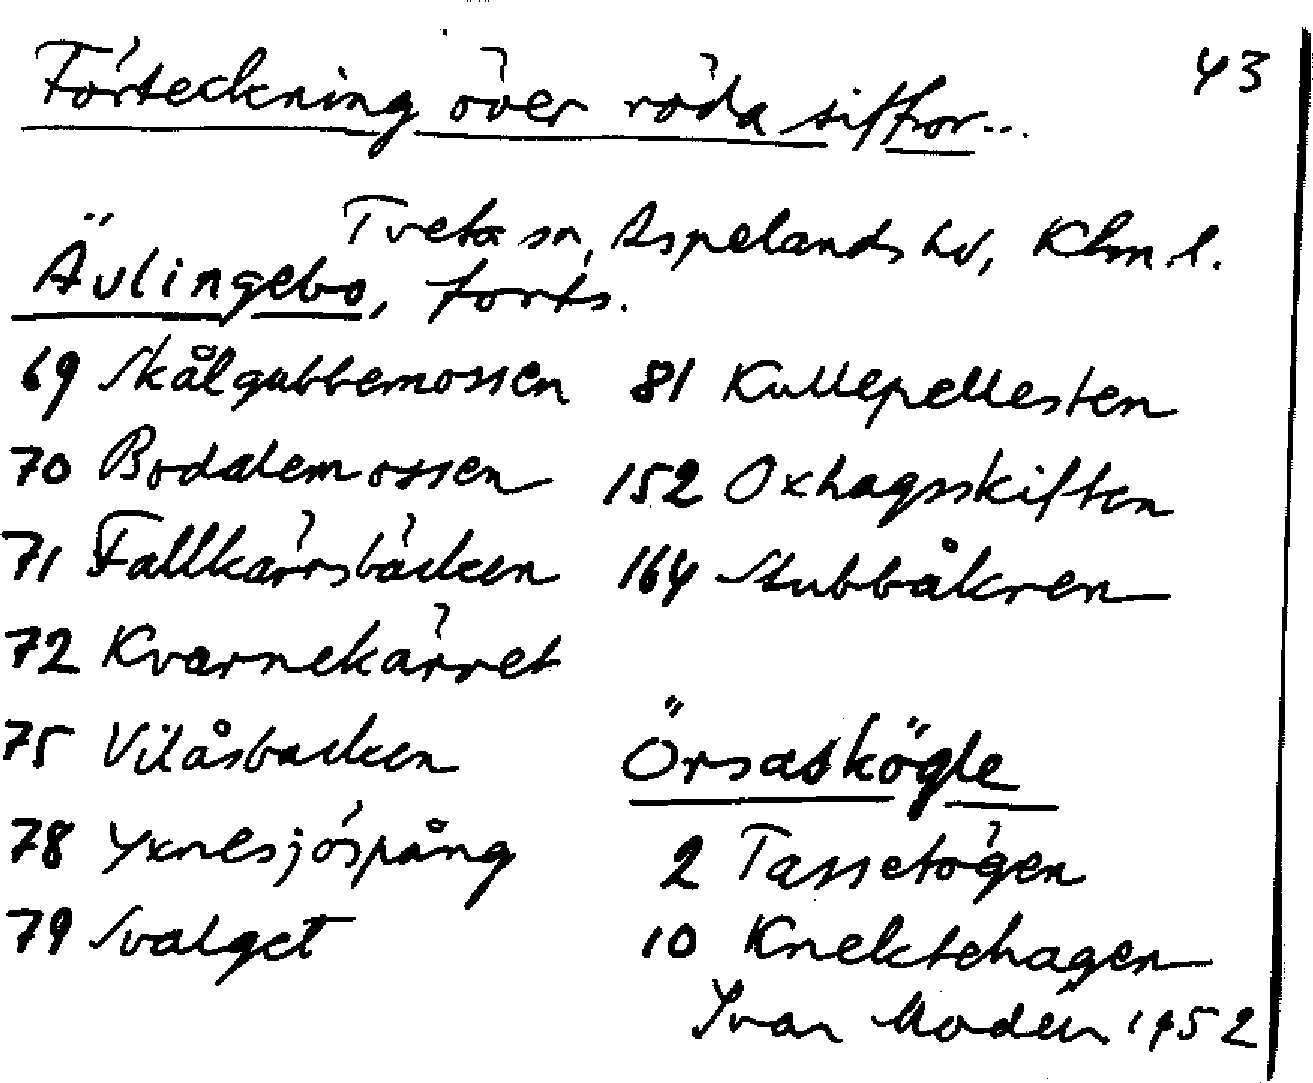 43
Förteckning över röda siffror...
Tveta sn, Aspelands hd, Klm.l.
Ävlingebo, forts.
69 Skålgubbemossen
70 Bodalemossen
71 Fallkärrsbäcken
72 Kvarnekärret
75 Vilåsbacken
78 Yxnesjöspång
79 Svalget
81 Kullepellesten
152 Oxhagsskiften
164 Stubbåkren
Örsaskögle
2 Tassetögen
10 Knektehagen
Yvar Modéer 1952